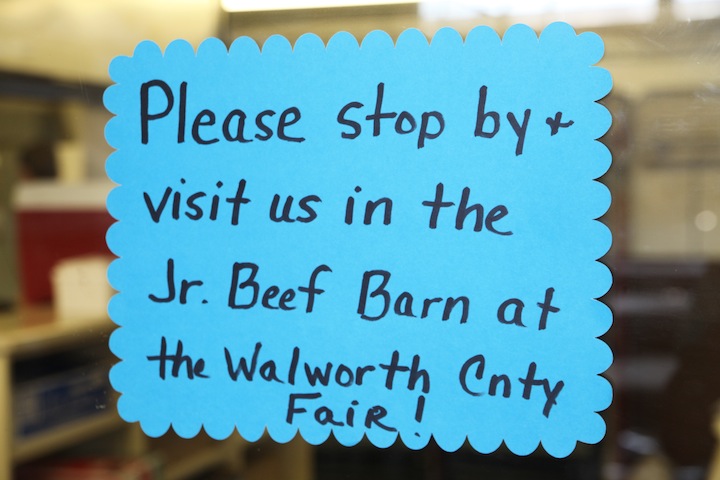 Please stop by +
visit us in the
Jr. Beef Barn at
the Walworth Cnty
Fair!